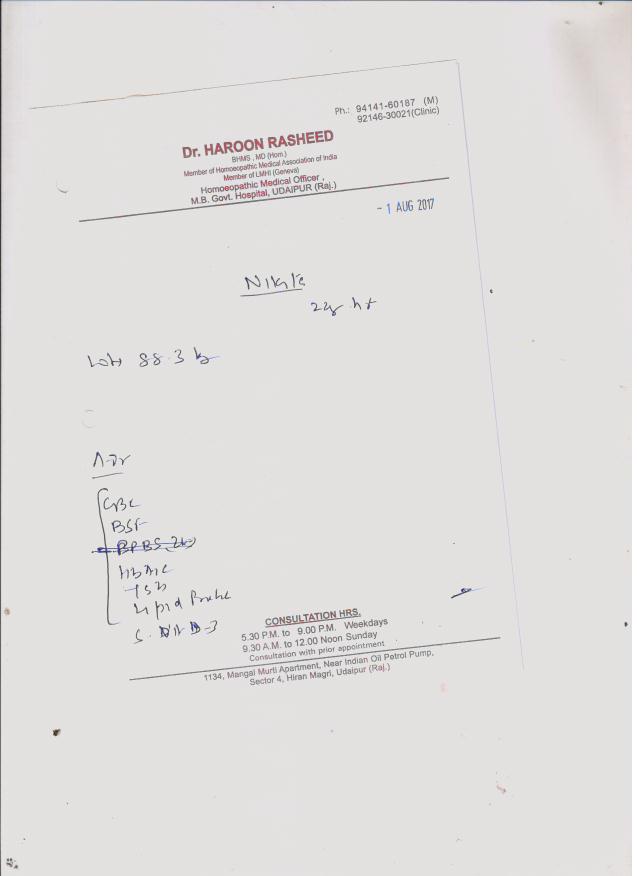 Ph.: 94141-60187 (M)
92146-30021(Clinic)
Dr. HAROON RASHEED
BHMS , MD (Hom.)
Member of Homoeopathic Medical Association of India
Member of LMHI (Geneva)
Homoeopathic Medical Officer ,
M.B. Govt. Hospital, UDAIPUR (Raj.)
- 1 AUG 2017
88.3 k
CBC
BSF
HbA1c
TSH
Lipid
S. D-3
CONSULTATION HRS.
5.30 P.M. to 9.00 P.M. Weekdays
9.30 A.M. to 12.00 Noon Sunday
Consultation with prior appointment
1134, Mangal Murti Apartment, Near Indian Oil Petrol Pump,
Sector 4, Hiran Magri, Udaipur (Raj.)